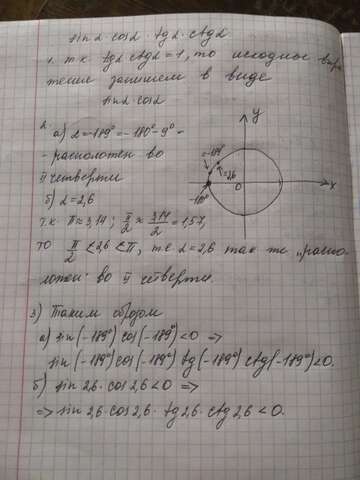 sin α cos α · tg α · ctg α
1. т.к. tg α ctg α = 1, то исходное выра
жение запишем в виде
sin α cos α
2
а) α = -189° = -180° - 9° -
- расположен во
II четверти
б) α = 2,6
т.к. π ≈ 3,14; π/2 ≈ 3,14/2 = 1,57,
то π/2 < 2,6 < π, т.е. α = 2,6 так же „распо-
ложен" во II четверти.
y
x
0
-189°
2,6
-180°
3) Таким образом
а) sin(-189°) cos(-189°) < 0 =>
sin(-189°) cos(-189°) tg(-189°) ctg(-189°) < 0.
б) sin 2,6 · cos 2,6 < 0 =>
=> sin 2,6 · cos 2,6 · tg 2,6 · ctg 2,6 < 0.